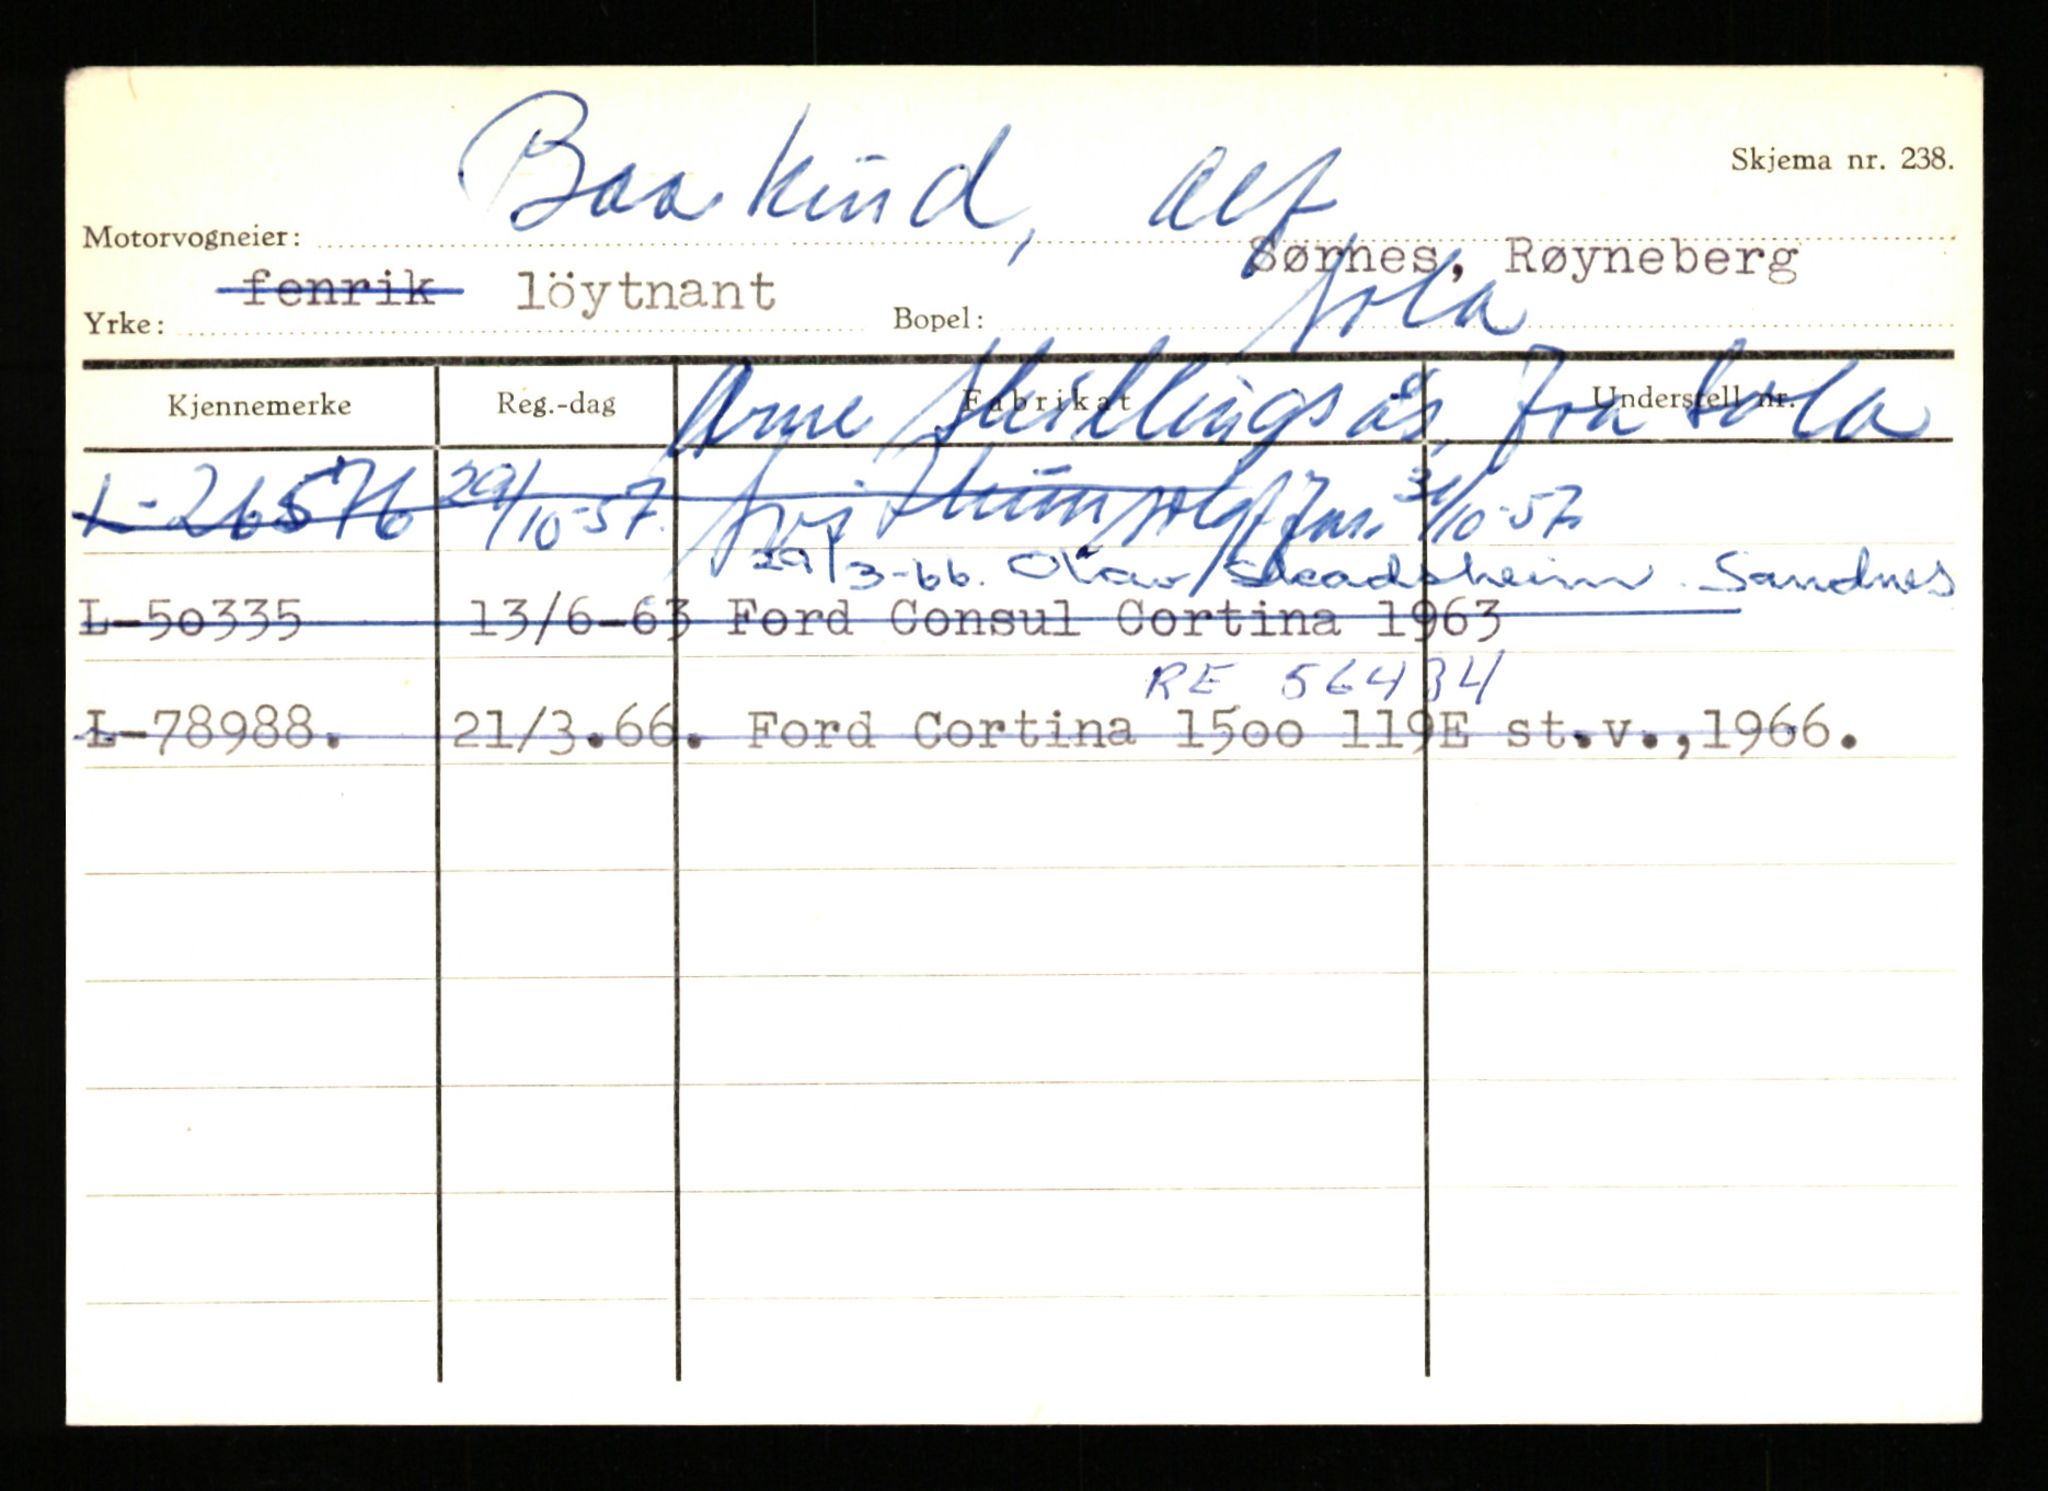 Skjema nr. 238.
Motorvogneier: Baakind, Alf
Sørnes, Røyneberg
Yrke: fenrik löytnant Bopel: Sola
Kjennemerke Reg.-dag Fabrikat Understell nr.
Arne Skillingsås, fra Sola
L-26576 29/10-57. 31/10-57
29/3-66. Olav Skadsheim Sandnes
L-50335 13/6-63 Ford Consul Cortina 1963
RE 56434
L-78988. 21/3.66. Ford Cortina 1500 119E st.v.,1966.